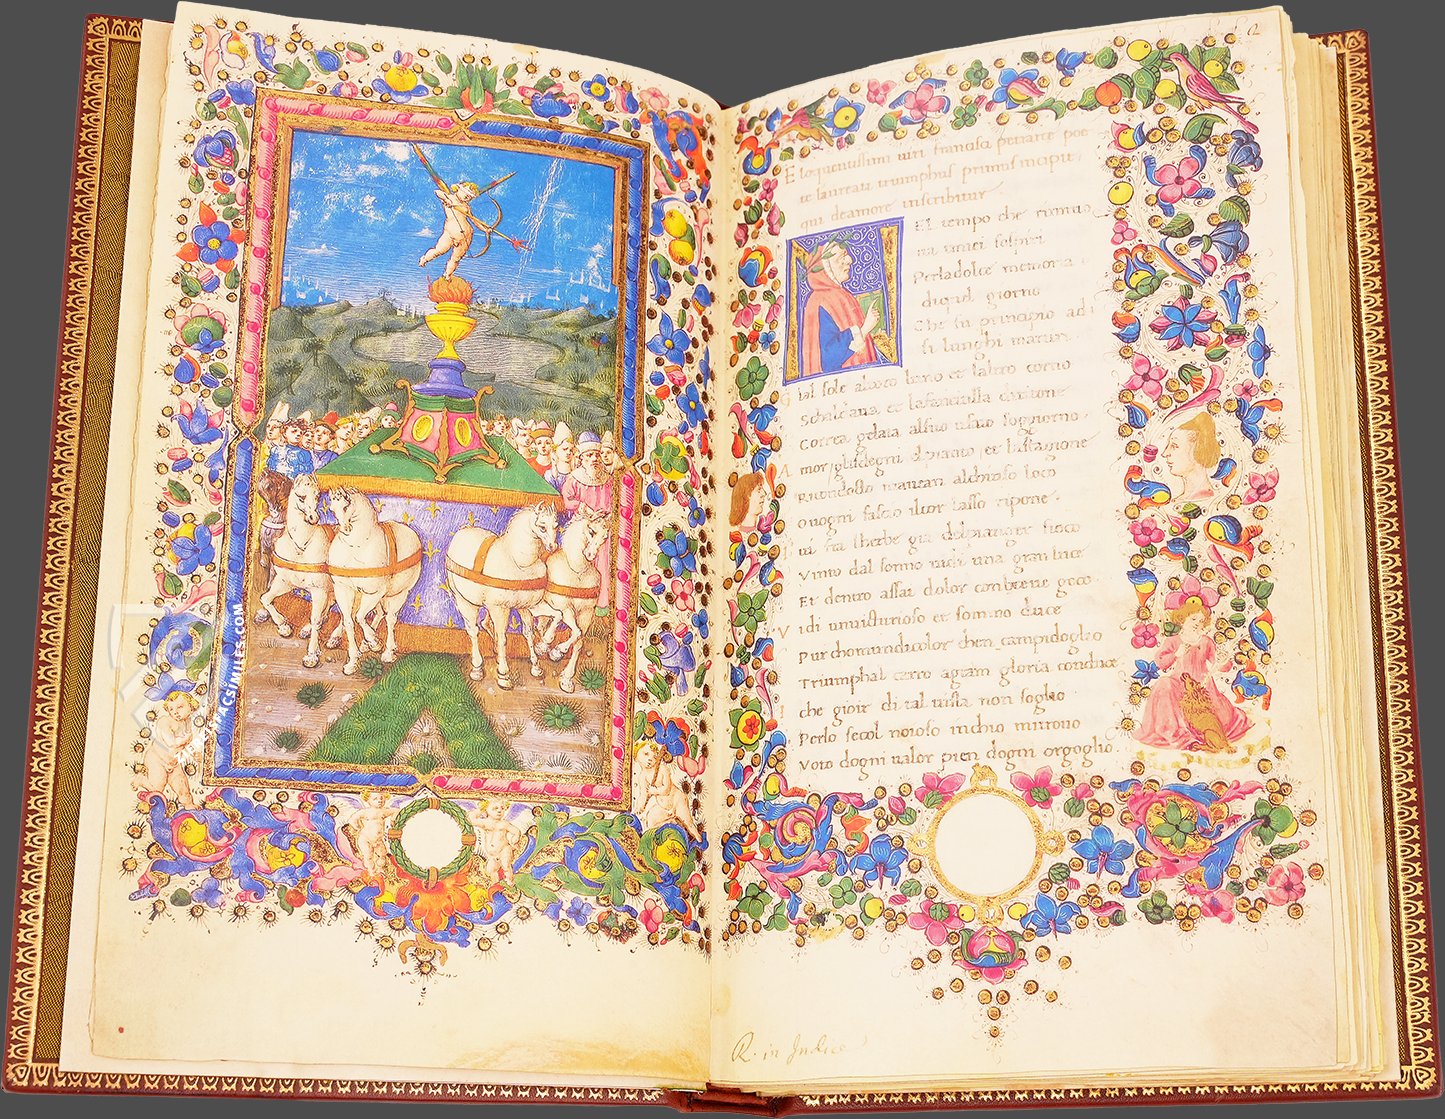 Eloquentissimi viri francisci petrarce poe
te laureati triumphus primus incipit,
qui deamore inscribitur
El tempo che rinnuo
va miei sospiri
Perladolce memoria
diquel giorno
Che fu principio ad
si lunghi martiri
sole
Scaldava et lafanciulla di titone
Correa gelata alsuo soggiorno
Amor glisdegni elpianto et lastagione
Ricondotto mavean alchiuso loco
ovogni fascio ilcor lasso ripone
Ivi fra lherbe gia delpianger fioco
Vinto dal sonno vidi una gran luce
Et dentro assai dolor con breve gioco
Vidi
Pur chomun di color chen campidoglio
Triumphal carro agran gloria conduce
che gioir di tal vista non soglio
Perlo secol noioso inchio mi trovo
Voto dogni valor pien dogni orgoglio
R. in Indice
FACSIMILES.COM